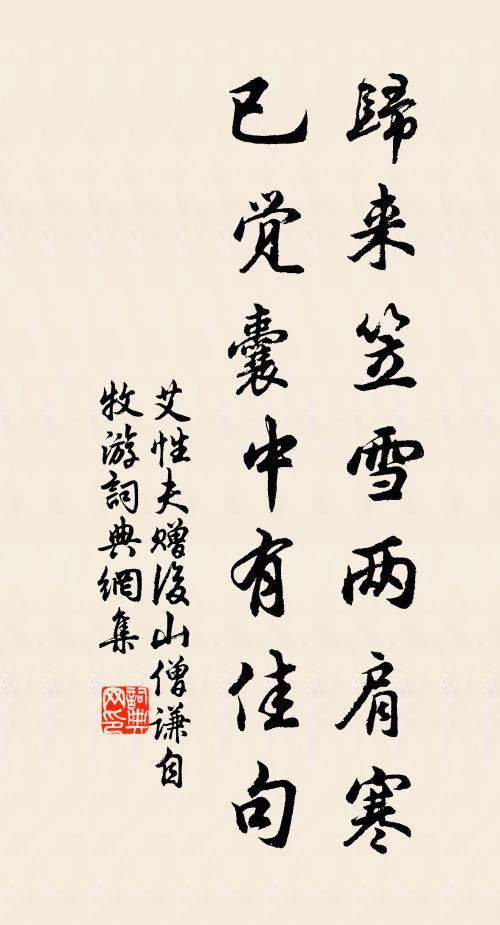 歸来笠雪两肩寒
已觉囊中有佳句
艾性夫赠後山僧谦自
牧游詞典網集
詞典
网印